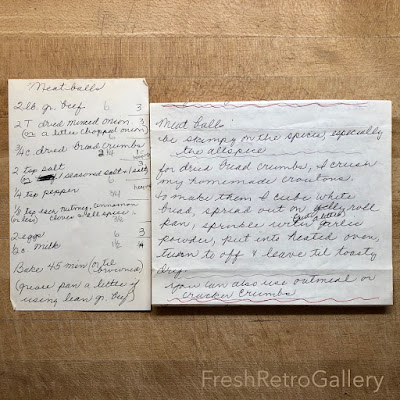 Meat balls
2 lb. gr. beef 6 3
2 T dried minced onion 3
(or a little chopped onion)
3/4 c dried bread crumbs
2 tsp salt 3
(or seasoned salt & salt)
1/4 tsp pepper 3/4
1/8 tsp each nutmeg, cinnamon
(or less) cloves & allspice
2 eggs 6 3
1/2 c milk 1 1/2
Bake 45 min (or til
browned)
(grease pan a little if
using lean gr. beef)
Meat balls
be skimpy on the spices, especially
the allspice
for dried bread crumbs, I crush
my homemade croutons.
to make them I cube white
bread, spread out on jelly roll
pan, sprinkle with (just a little) garlic
powder, put into heated oven,
turn to off & leave til toasty
dry.
you can also use oatmeal or
cracker crumbs
FreshRetroGallery